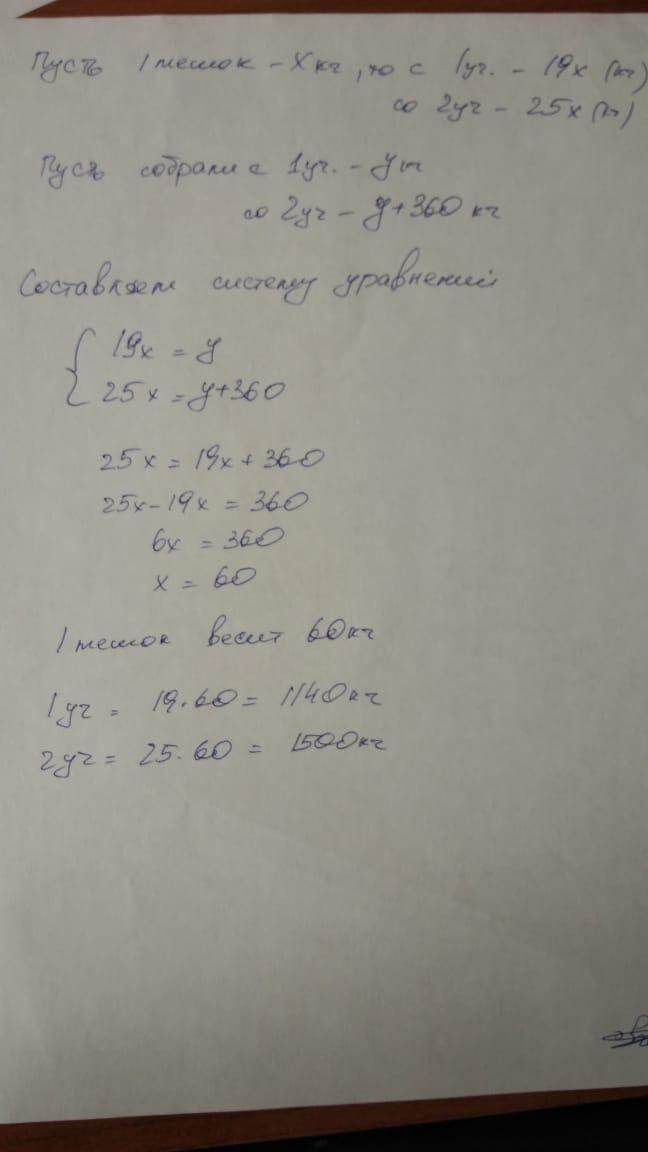 Пусть 1 мешок - х кг, то с 1уч. - 19х (кг)
со 2уч - 25х (кг)
Пусть собрали с 1уч. - у кг
со 2уч - у+360 кг
Составляем систему уравнений
{ 19х = у
25х = у+360
25х = 19х + 360
25х - 19х = 360
6х = 360
х = 60
1 мешок весит 60кг
1уч = 19·60 = 1140кг
2уч = 25·60 = 1500кг